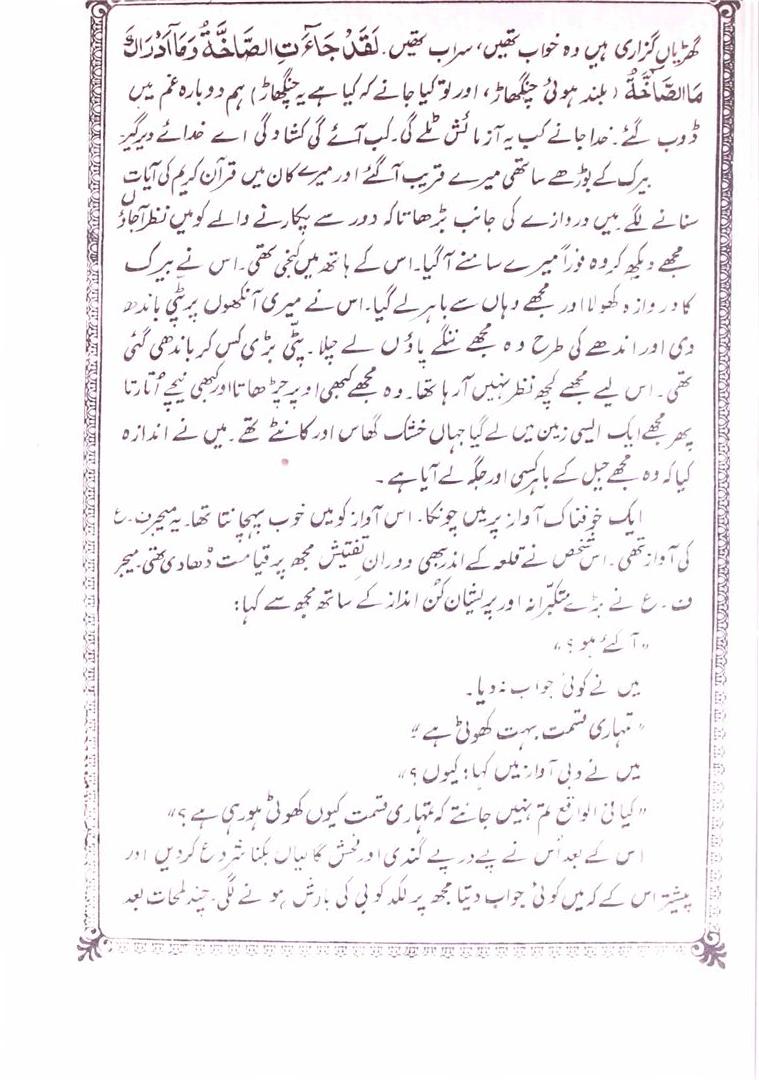 گھڑیاں گزاری ہیں وہ خواب تھیں، سراب تھیں۔ لَقَدْ جَاءَتِ الصَّاخَّةُ وَمَا أَدْرَاكَ
مَا الصَّاخَّةُ (بلند ہوئی چنگھاڑ، اور تو کیا جانے کہ کیا ہے یہ چنگھاڑ) ہم دوبارہ غم میں
ڈوب گئے۔ خدا جانے کب یہ آزمائش ٹلے گی۔ کب آئے گی کشادگی اے خدائے دیرگیر
بیرک کے بوڑھے ساتھی میرے قریب آگئے اور میرے کان میں قرآن کریم کی آیات
سنانے لگے۔ میں دروازے کی جانب بڑھا تاکہ دور سے پکارنے والے کو میں نظر آجاؤں
مجھے دیکھ کر وہ فوراً میرے سامنے آگیا۔ اس کے ہاتھ میں کنجی تھی۔ اس نے بیرک
کا دروازہ کھولا اور مجھے وہاں سے باہر لے گیا۔ اس نے میری آنکھوں پر پٹی باندھ
دی اور اندھے کی طرح وہ مجھے ننگے پاؤں لے چلا۔ پٹّی بڑی کس کر باندھی گئی
تھی۔ اس لیے مجھے کچھ نظر نہیں آرہا تھا۔ وہ مجھے کبھی اوپر چڑھاتا اور کبھی نیچے اُتارتا
پھر مجھے ایک ایسی زمین میں لے گیا جہاں خشک گھاس اور کانٹے تھے۔ میں نے اندازہ
کیا کہ وہ مجھے جیل کے باہر کسی اور جگہ لے آیا ہے۔
ایک خوفناک آواز پر میں چونکا۔ اس آواز کو میں خوب پہچانتا تھا۔ یہ میجر ف۔ع
کی آواز تھی۔ اس شخص نے قلعہ کے اندر بھی دوران تفتیش مجھ پر قیامت ڈھا دی تھی۔ میجر
ف۔ع نے بڑے متکبّرانہ اور پریشان کُن انداز کے ساتھ مجھ سے کہا:
"آگئے ہو؟"
میں نے کوئی جواب نہ دیا۔
"تمہاری قسمت بہت کھوٹی ہے"
میں نے دبی آواز میں کہا: کیوں؟"
"کیا فی الواقع تم نہیں جانتے کہ تمہاری قسمت کیوں کھوٹی ہو رہی ہے؟"
اس کے بعد اُس نے پے در پے گندی اور فحش گالیاں بکنا شروع کر دیں اور
پیشتر اس کے کہ میں کوئی جواب دیتا مجھ پر لکد کوبی کی بارش ہونے لگی۔ چند لمحات بعد